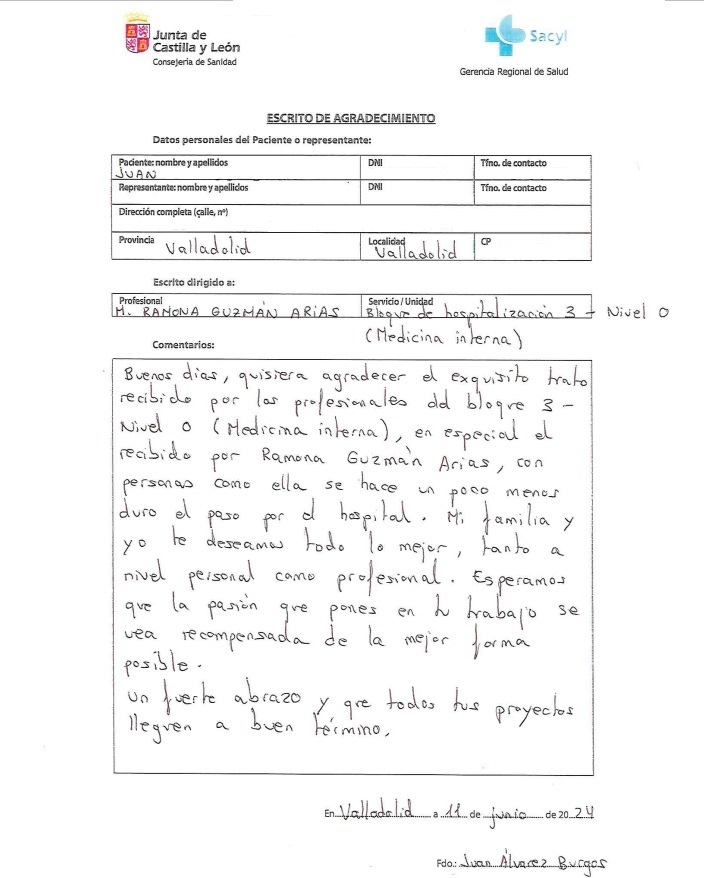 Junta de
Castilla y León
Consejería de Sanidad
Sacyl
Gerencia Regional de Salud
ESCRITO DE AGRADECIMIENTO
Datos personales del Paciente o representante:
Paciente: nombre y apellidos DNI Tfno. de contacto
JUAN
Representante: nombre y apellidos DNI Tfno. de contacto
Dirección completa (calle, nº)
Provincia Valladolid Localidad Valladolid CP
Escrito dirigido a:
Profesional Servicio / Unidad
M. RAMONA GUZMÁN ARIAS Bloque de hospitalización 3 - Nivel 0
(Medicina interna)
Comentarios:
Buenos días, quisiera agradecer el exquisito trato
recibido por los profesionales del bloque 3 -
Nivel 0 (Medicina interna), en especial el
recibido por Ramona Guzmán Arias, con
personas como ella se hace un poco menos
duro el paso por el hospital. Mi familia y
yo te deseamos todo lo mejor, tanto a
nivel personal como profesional. Esperamos
que la pasión que pones en tu trabajo se
vea recompensada de la mejor forma
posible.
Un fuerte abrazo y que todos tus proyectos
lleguen a buen término.
En Valladolid a 11 de junio de 2024
Fdo.: Juan Álvarez Burgos